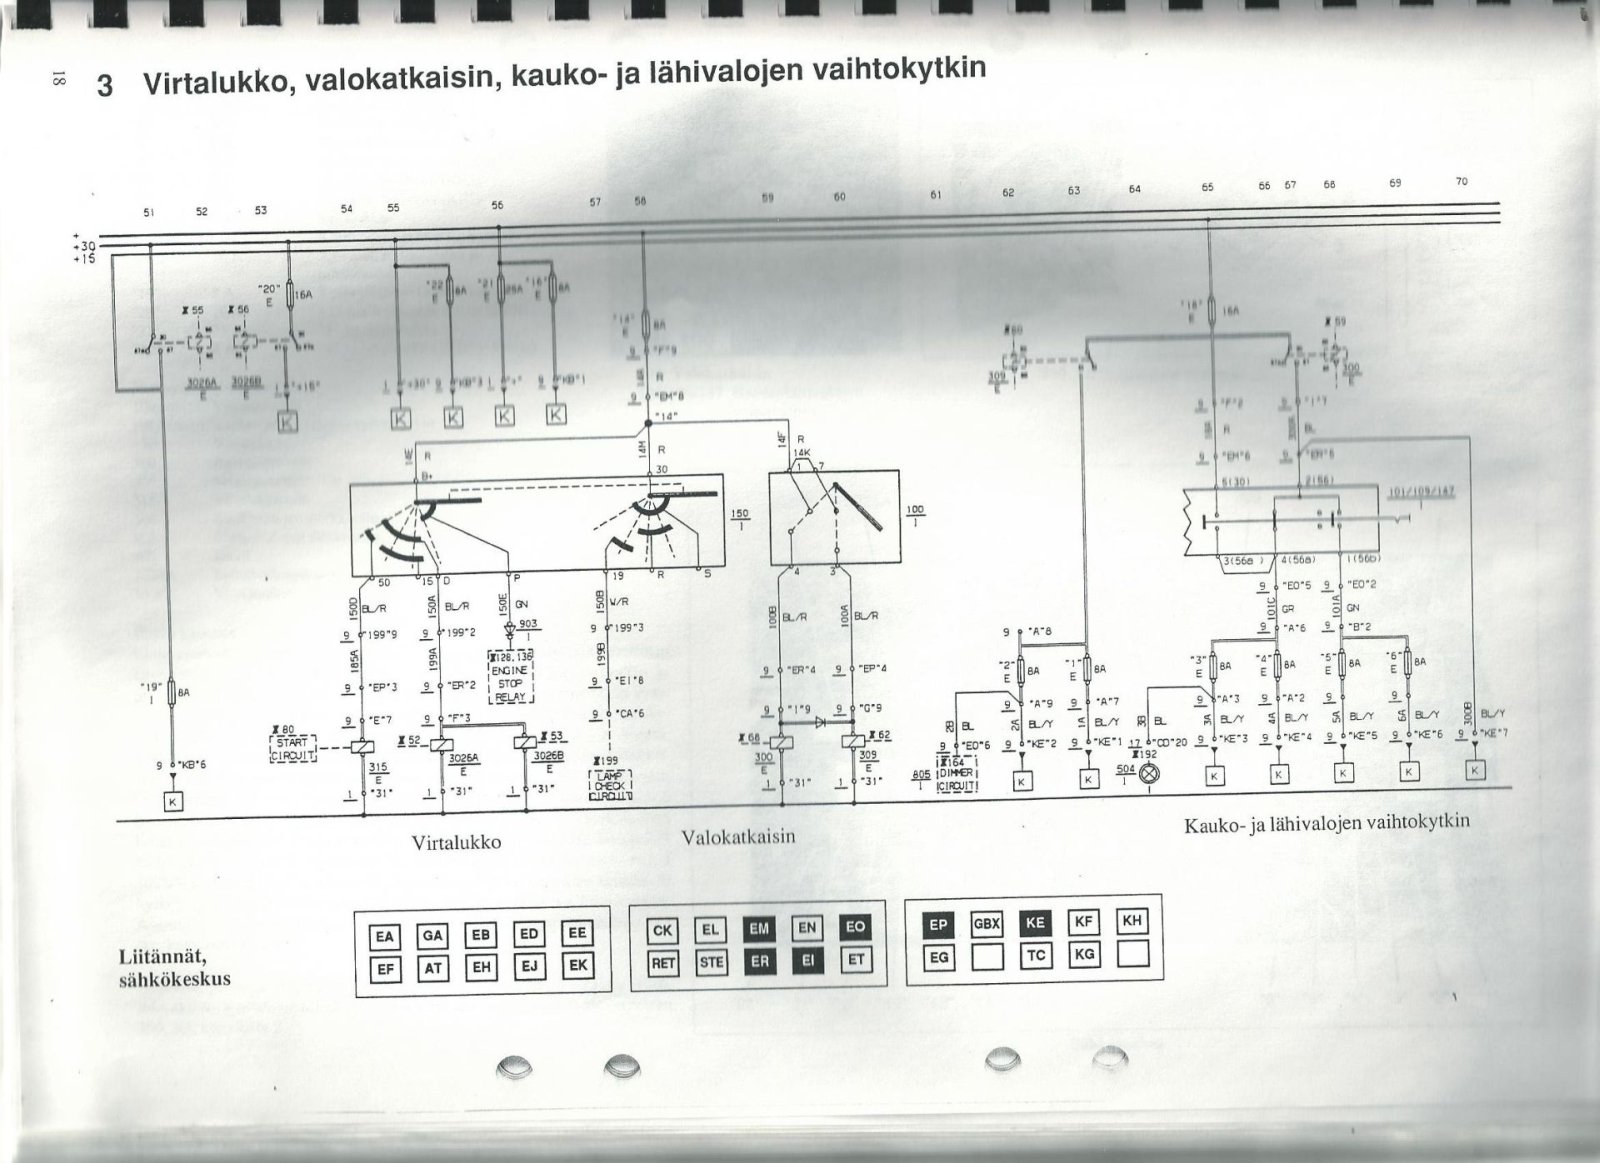 18
3 Virtalukko, valokatkaisin, kauko- ja lähivalojen vaihtokytkin
51 52 53 54 55 56 57 58 59 60 61 62 63 64 65 66 67 68 69 70
+
+30
+15
"20" E 16A
"22" E 8A "21" E "16" E 8A
"18" 16A
8A
55 56
3026A E 3026B E
309 E
300 E
"+15"
1 "+30" 9 "KB"3 1 "+" 9 "KB"1
9 "F"9
14A R
9 "EM"8
"14"
K K K K K
14E R 14M R 14F R
14K
B+ 30 1 7
150 I
100 I
9 "F"2 9 "I"7
R BL
9 "EM"6 9 "ER"5
5(30) 2(56)
101/109/147 I
3(56a) 4(56a) 1(56b)
50 15 D P 19 R S 4 3
150D BL/R 150A BL/R 150E GN 150B W/R 100B BL/R 100A BL/R
9 "199"9 9 "199"2 903 I 9 "199"3
185A 199A 199B
128.136
ENGINE
STOP
RELAY
9 "EP"3 9 "ER"2 9 "EI"8 9 "ER"4 9 "EP"4
9 "E"7 9 "F"3 9 "CA"6 9 "I"9 9 "G"9
80
START
CIRCUIT
52 53 66 62
315 E 3026A E 3026B E 300 E 309 E
199
LAMP
CHECK
CIRCUIT
1 "31" 1 "31" 1 "31" 1 "31" 1 "31"
"19" I 8A
9 "KB"6
K
9 "EO"5 9 "EO"2
101C GR 101A GN
9 "A"6 9 "B"2
9 "A"8
"2" E 8A "1" E 8A "3" E 8A "4" E 8A "5" E 8A "6" E 8A
9 "A"9 9 "A"7 9 "A"3 9 "A"2 9 9
2B BL 2A BL/Y 1A BL/Y 3B BL 3A BL/Y 4A BL/Y 5A BL/Y 6A BL/Y 300B BL/Y
9 "EO"6 9 "KE"2 9 "KE"1 17 "CD"20 9 "KE"3 9 "KE"4 9 "KE"5 9 "KE"6 9 "KE"7
805 I
164
DIMMER
CIRCUIT
192
504 I
K K K K K K K
Virtalukko
Valokatkaisin
Kauko- ja lähivalojen vaihtokytkin
Liitännät,
sähkökeskus
EA GA EB ED EE
EF AT EH EJ EK
CK EL EM EN EO
RET STE ER EI ET
EP GBX KE KF KH
EG TC KG